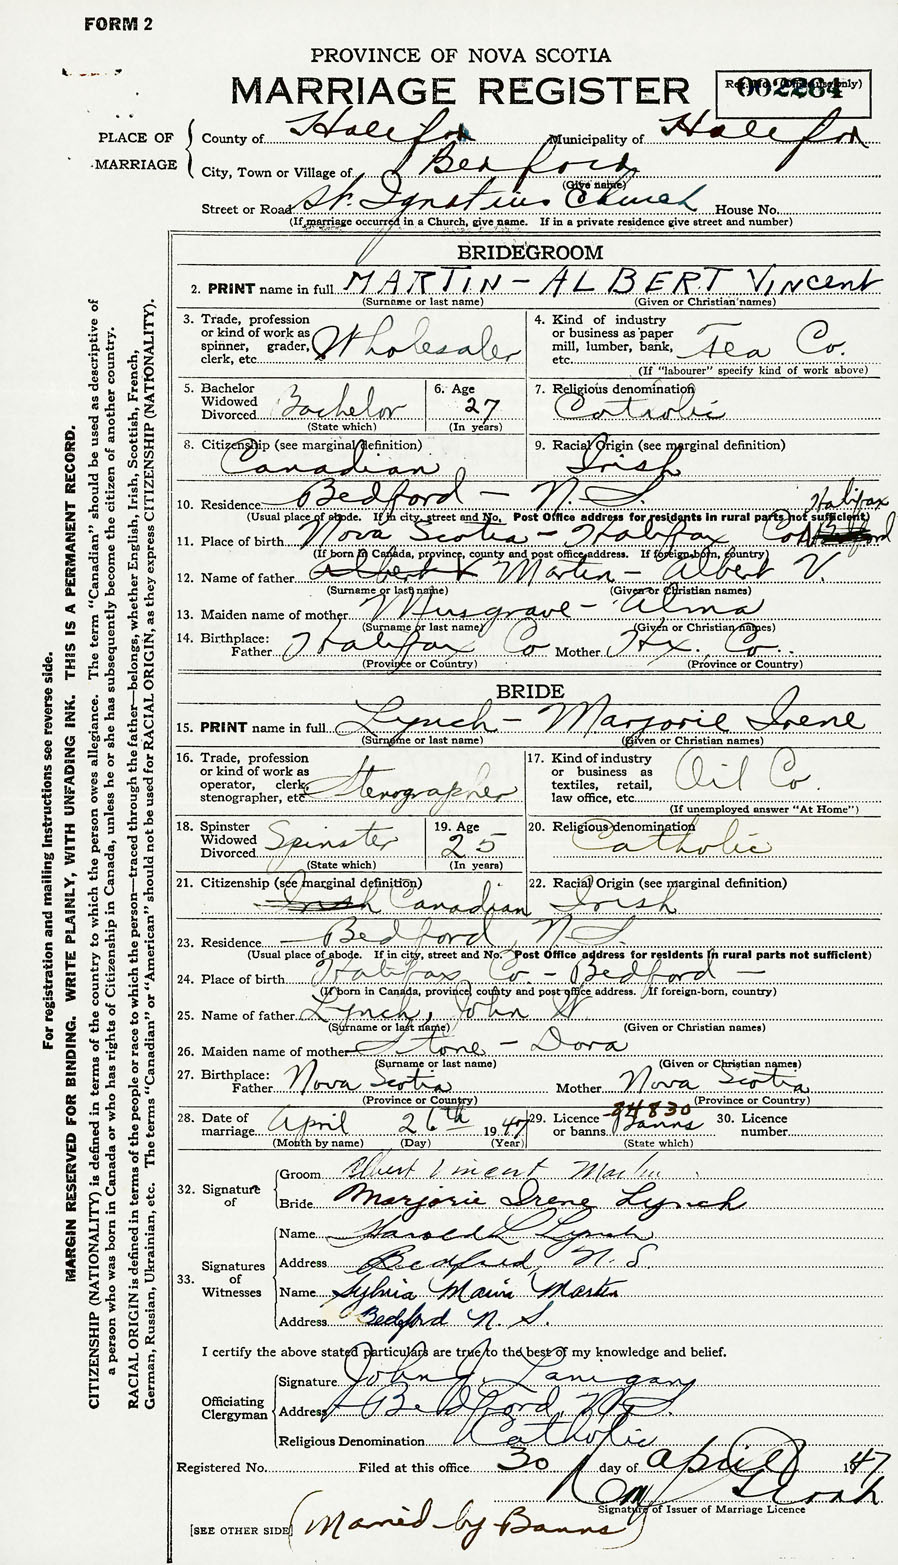 FORM 2
PROVINCE OF NOVA SCOTIA
MARRIAGE REGISTER
002264
PLACE OF MARRIAGE
County of Halifax Municipality of Halifax
City, Town or Village of Bedford
(Give name)
Street or Road St. Ignatius Church House No.
(If marriage occurred in a Church, give name. If in a private residence give street and number)
BRIDEGROOM
2. PRINT name in full MARTIN - ALBERT VINCENT
(Surname or last name) (Given or Christian names)
3. Trade, profession or kind of work as spinner, grader, clerk, etc. Wholesaler
4. Kind of industry or business as paper mill, lumber, bank, etc. Tea Co.
(If "labourer" specify kind of work above)
5. Bachelor Widowed Divorced Bachelor
(State which)
6. Age 27
(In years)
7. Religious denomination Catholic
8. Citizenship (see marginal definition) Canadian
9. Racial Origin (see marginal definition) Irish
10. Residence Bedford - N.S.
(Usual place of abode. If in city, street and No. Post Office address for residents in rural parts not sufficient)
11. Place of birth Nova Scotia - Halifax Co. Halifax
(If born in Canada, province, county and post office address. If foreign-born, country)
12. Name of father Albert V Martin - Albert V.
(Surname or last name) (Given or Christian names)
13. Maiden name of mother Musgrave - Alma
(Surname or last name) (Given or Christian names)
14. Birthplace: Father Halifax Co Mother Hx. Co.
(Province or Country) (Province or Country)
BRIDE
15. PRINT name in full Lynch - Marjorie Irene
(Surname or last name) (Given or Christian names)
16. Trade, profession or kind of work as operator, clerk, stenographer, etc. Stenographer
17. Kind of industry or business as textiles, retail, law office, etc. Oil Co
(If unemployed answer "At Home")
18. Spinster Widowed Divorced Spinster
(State which)
19. Age 25
(In years)
20. Religious denomination Catholic
21. Citizenship (see marginal definition) Irish Canadian
22. Racial Origin (see marginal definition) Irish
23. Residence Bedford, N.S.
(Usual place of abode. If in city, street and No. Post Office address for residents in rural parts not sufficient)
24. Place of birth Halifax Co. - Bedford -
(If born in Canada, province, county and post office address. If foreign-born, country)
25. Name of father Lynch, John
(Surname or last name) (Given or Christian names)
26. Maiden name of mother Stone - Dora
(Surname or last name) (Given or Christian names)
27. Birthplace: Father Nova Scotia Mother Nova Scotia
(Province or Country) (Province or Country)
28. Date of marriage April 26th 1947
(Month by name) (Day) (Year)
29. Licence or banns 84830 Banns
(State which)
30. Licence number
32. Signature of
Groom Albert Vincent Martin
Bride Marjorie Irene Lynch
33. Signatures of Witnesses
Name Harold L Lynch
Address Bedford, N.S.
Name Sylvia Marie Martin
Address Bedford N.S.
I certify the above stated particulars are true to the best of my knowledge and belief.
Officiating Clergyman
Signature John J. Lanigan
Address Bedford, N.S.
Religious Denomination Catholic
Registered No. Filed at this office 30 day of April 1947
Signature of Issuer of Marriage Licence
[SEE OTHER SIDE] (Married by Banns)
For registration and mailing instructions see reverse side.
MARGIN RESERVED FOR BINDING. WRITE PLAINLY, WITH UNFADING INK. THIS IS A PERMANENT RECORD.
CITIZENSHIP (NATIONALITY) is defined in terms of the country to which the person owes allegiance. The term "Canadian" should be used as descriptive of
a person who was born in Canada or who has rights of Citizenship in Canada, unless he or she has subsequently become the citizen of another country.
RACIAL ORIGIN is defined in terms of the people or race to which the person—traced through the father—belongs, whether English, Irish, Scottish, French,
German, Russian, Ukrainian, etc. The terms "Canadian" or "American" should not be used for RACIAL ORIGIN, as they express CITIZENSHIP (NATIONALITY).